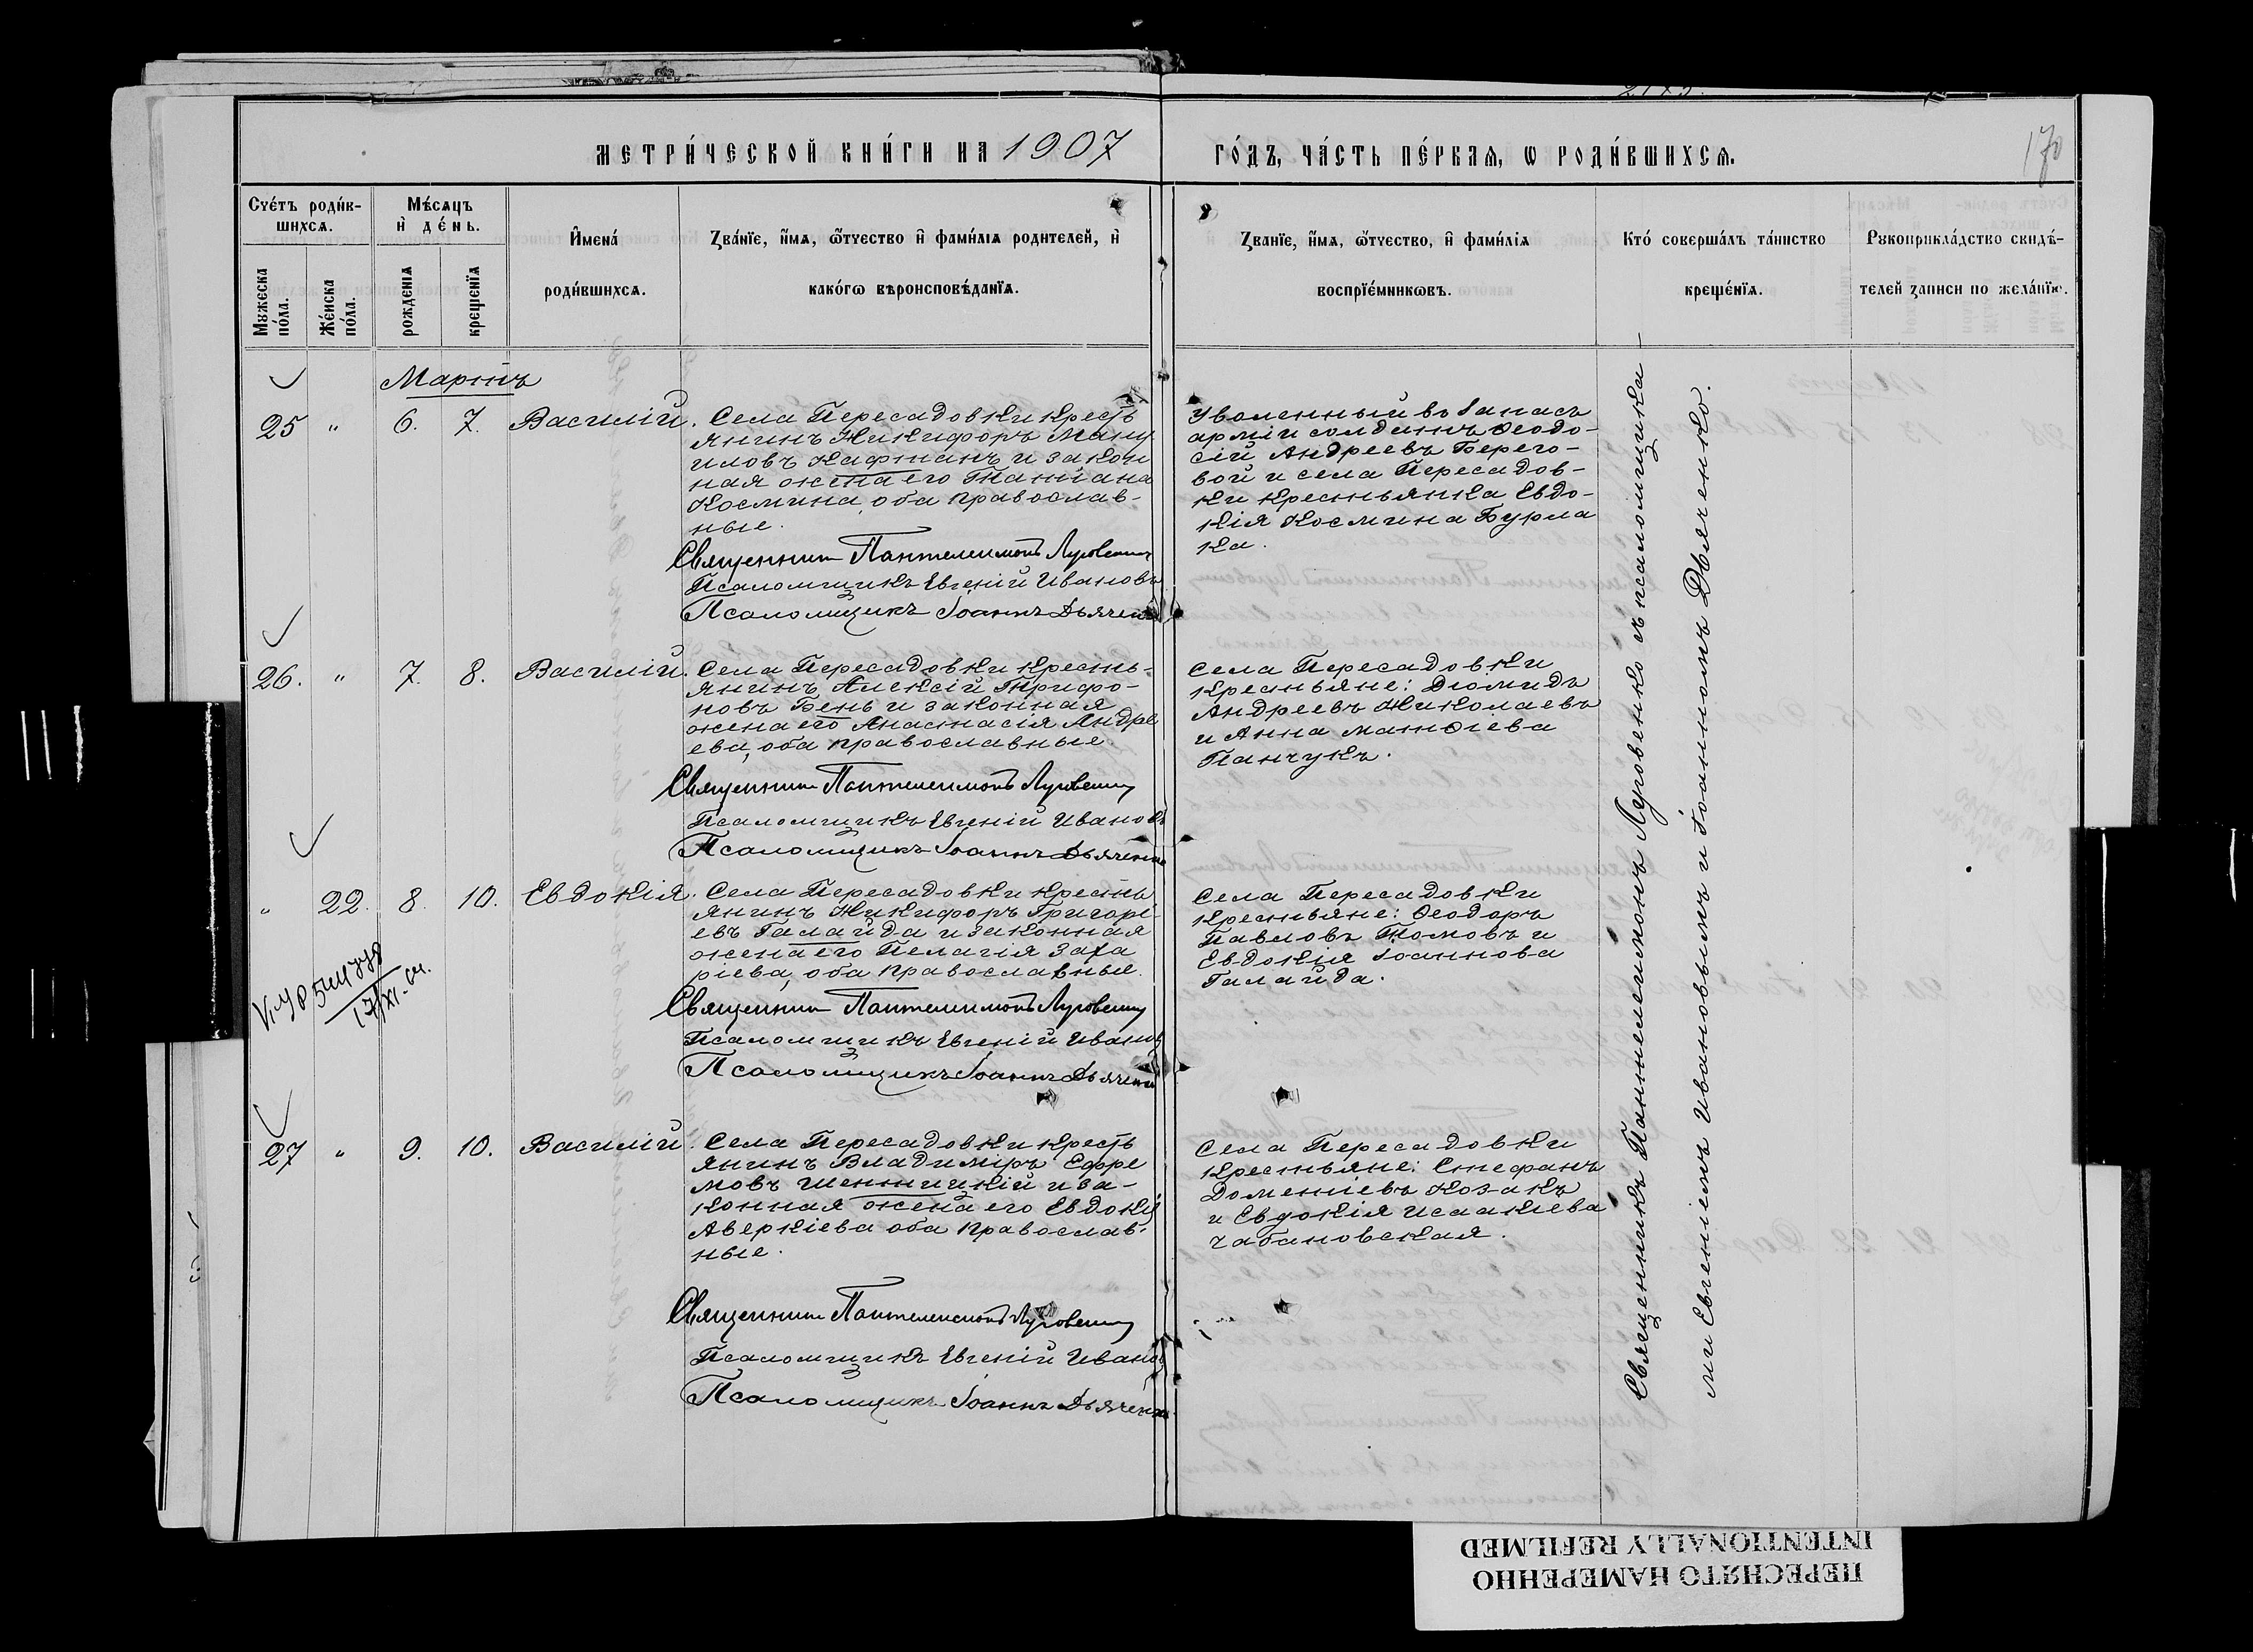 МЕТРИ́ЧЕСКОЙ КНИ́ГИ НА 1907
ГО́ДЪ, ЧА́СТЬ ПЕ́РВАѦ, Ѡ РОДИ́ВШИХСѦ.
170
Счéтъ роди́в-
шихсѧ.
Мѣ́сѧцъ
и҆ де́нь.
Мꙋжеска
по́ла.
Же́нска
по́ла.
рожденїѧ
крещенїѧ
И҆мена́
роди́вшихсѧ.
Зва́нїе, и҆́мѧ, ѻ҆́тчество и҆ фами́лїѧ родителей, и҆
како́гѡ вѣроисповѣ́данїѧ.
Званїе, и҆́мѧ, ѻ҆́тчество, и҆ фами́лїѧ
воспрїе́мникѡвъ.
Кто́ соверша́лъ та́инство
креще́нїѧ.
Рꙋкоприкла́дство свидѣ́-
телей записи по жела́нїю.
Мартъ
25 " 6. 7. Василій.
Села Пересадовки кресть
янинъ Никифоръ Ману
иловъ Кафтанъ и закон
ная жена его Татіана
Космина, оба православ-
ные.
Священник Пантелеимонъ Луговенко
Псаломщикъ Евгеній Ивановъ
Псаломщикъ Іоаннъ Дьяченко
Уволенный въ запасъ
арміи солдатъ Ѳеодо-
сій Андреевъ Берего-
вой и села Пересадов-
ки крестьянка Евдо-
кія Космина Бурла
ка.
26. " 7. 8. Василій.
Села Пересадовки кресть-
янинъ Алексій Трифо-
новъ Бень и законная
жена его Анастасія Андре
ева, оба православные.
Священник Пантелеимонъ Луговенко
Псаломщикъ Евгеній Ивановъ
Псаломщикъ Іоаннъ Дьяченко
Села Пересадовки
крестьяне: Діомидъ
Андреевъ Николаевъ
и Анна Матѳіева
Панчукъ.
" 22. 8. 10. Евдокія.
Села Пересадовки кресть
янинъ Никифоръ Григорі
евъ Галайда и законная
жена его Пелагія Заха
ріева, оба православные.
Священник Пантелеимонъ Луговенко
Псаломщикъ Евгеній Иванов
Псаломщикъ Іоаннъ Дьяченко
Села Пересадовки
крестьяне: Ѳеодоръ
Павловъ Томовъ и
Евдокія Іоаннова
Галайда.
27 " 9. 10. Василій.
Села Пересадовки кресть
янинъ Владиміръ Ефре
мовъ Шепницкій и за-
конная жена его Евдокія
Аверкіева оба православ-
ные.
Священник Пантелеимонъ Луговенко
Псаломщикъ Евгеній Иванов
Псаломщикъ Іоаннъ Дьяченко
Села Пересадовки
крестьяне: Стефанъ
Доментіевъ Козакъ
и Евдокія Исаакіева
Чабановская.
Священникъ Пантелеимонъ Луговенко съ псаломщика-
ми Евгеніемъ Ивановымъ и Іоанномъ Дьяченко.
ПЕРЕСНЯТО НАМЕРЕННО
INTENTIONALLY REFILMED